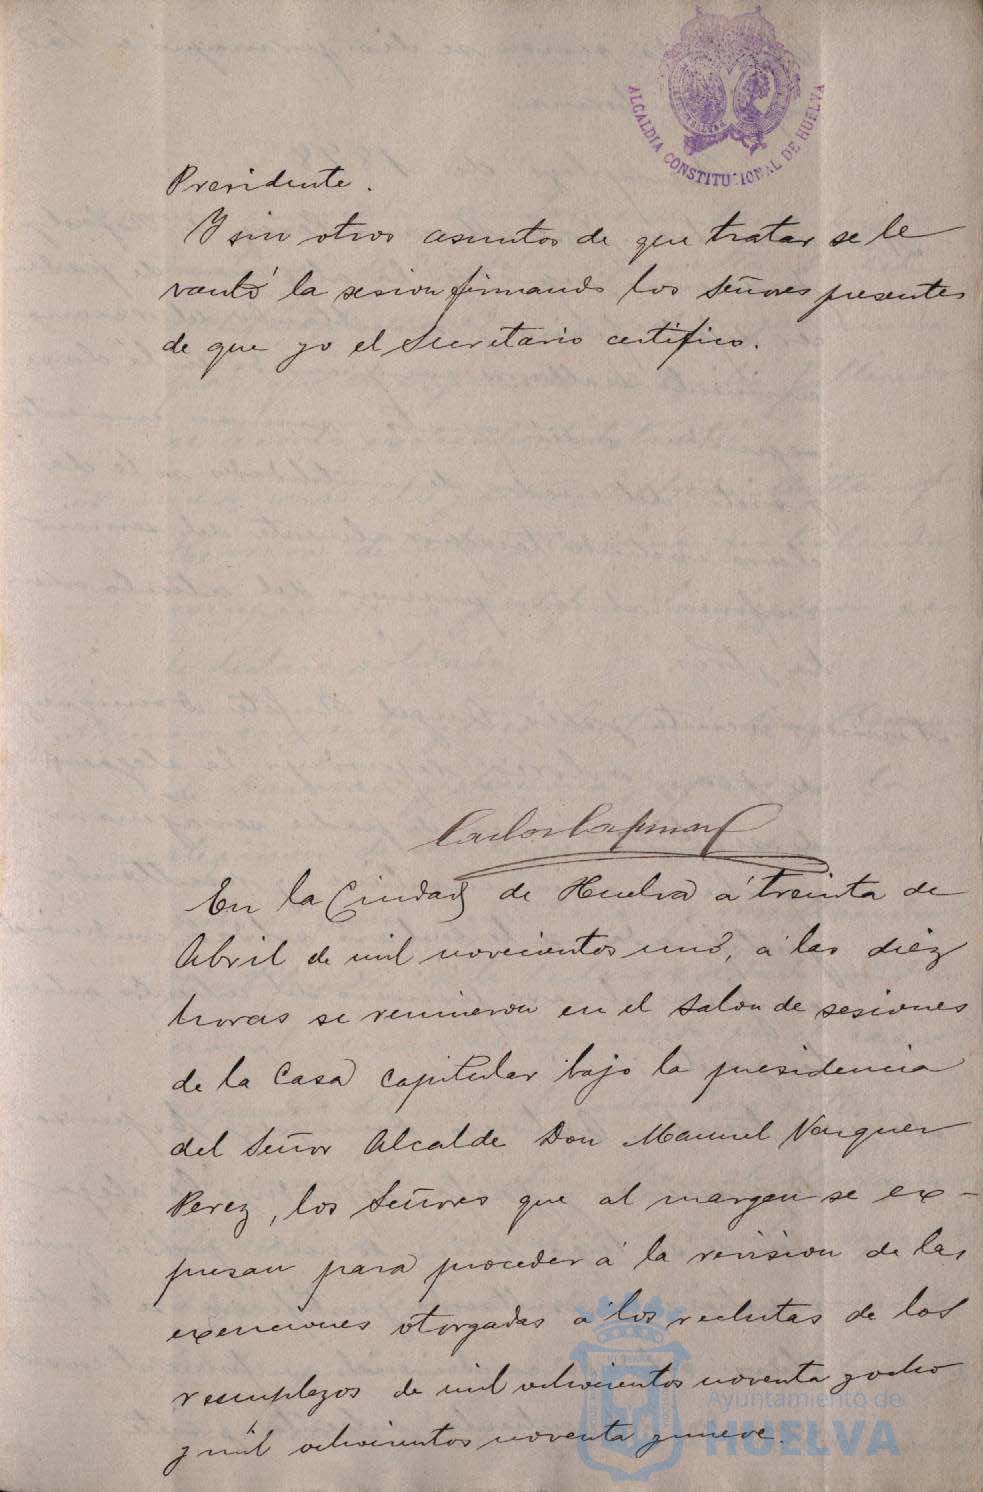 ALCALDIA CONSTITUCIONAL DE HUELVA
Presidente.
Y sin otros asuntos de que tratar se le
vantó la sesion firmando los Señores presentes
de que yo el Secretario certifico.
En la Ciudad de Huelva á treinta de
Abril de mil novecientos uno, á las diéz
horas se reunieron en el salon de sesiones
de la Casa Capitular bajo la presidencia
del Señor Alcalde Don Manuel Vazquez
Perez, los Señores que al margen se ex-
presan para proceder á la revision de las
exenciones otorgadas á los reclutas de los
reemplazos de mil ochocientos noventa y ocho
y mil ochocientos noventa y nueve.
Ayuntamiento de
HUELVA